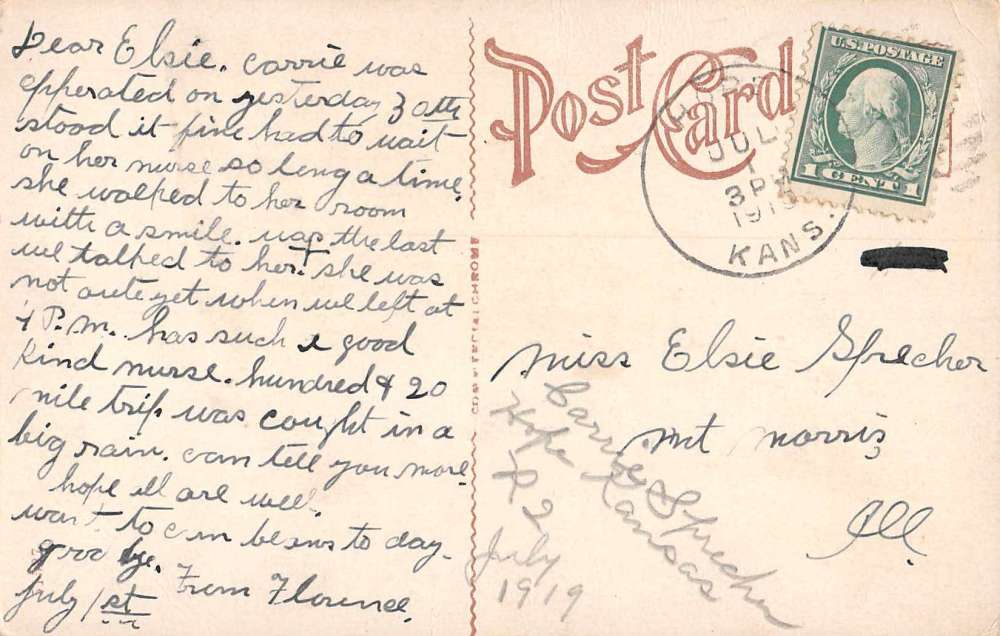 Dear Elsie. Carrie was
opperated on yesterday 30th
stood it fine had to wait
on her nurse so long a time
she walked to her room
with a smile. was the last
we talked to her & she was
not oute yet when we left at
4 P.M. has such a good
kind nurse. hundred & 20
mile trip was cought in a
big rain. can tell you more
hope all are well.
want to can beans to day.
good bye.
July 1st From Florence.
Post Card
U.S. POSTAGE
1 CENT 1
JUL
1
3 PM
KANS.
Miss Elsie Sprecher
Mt Norris
Ill.
Carrie Sprecher
Hope Kansas
R 2
July
1919